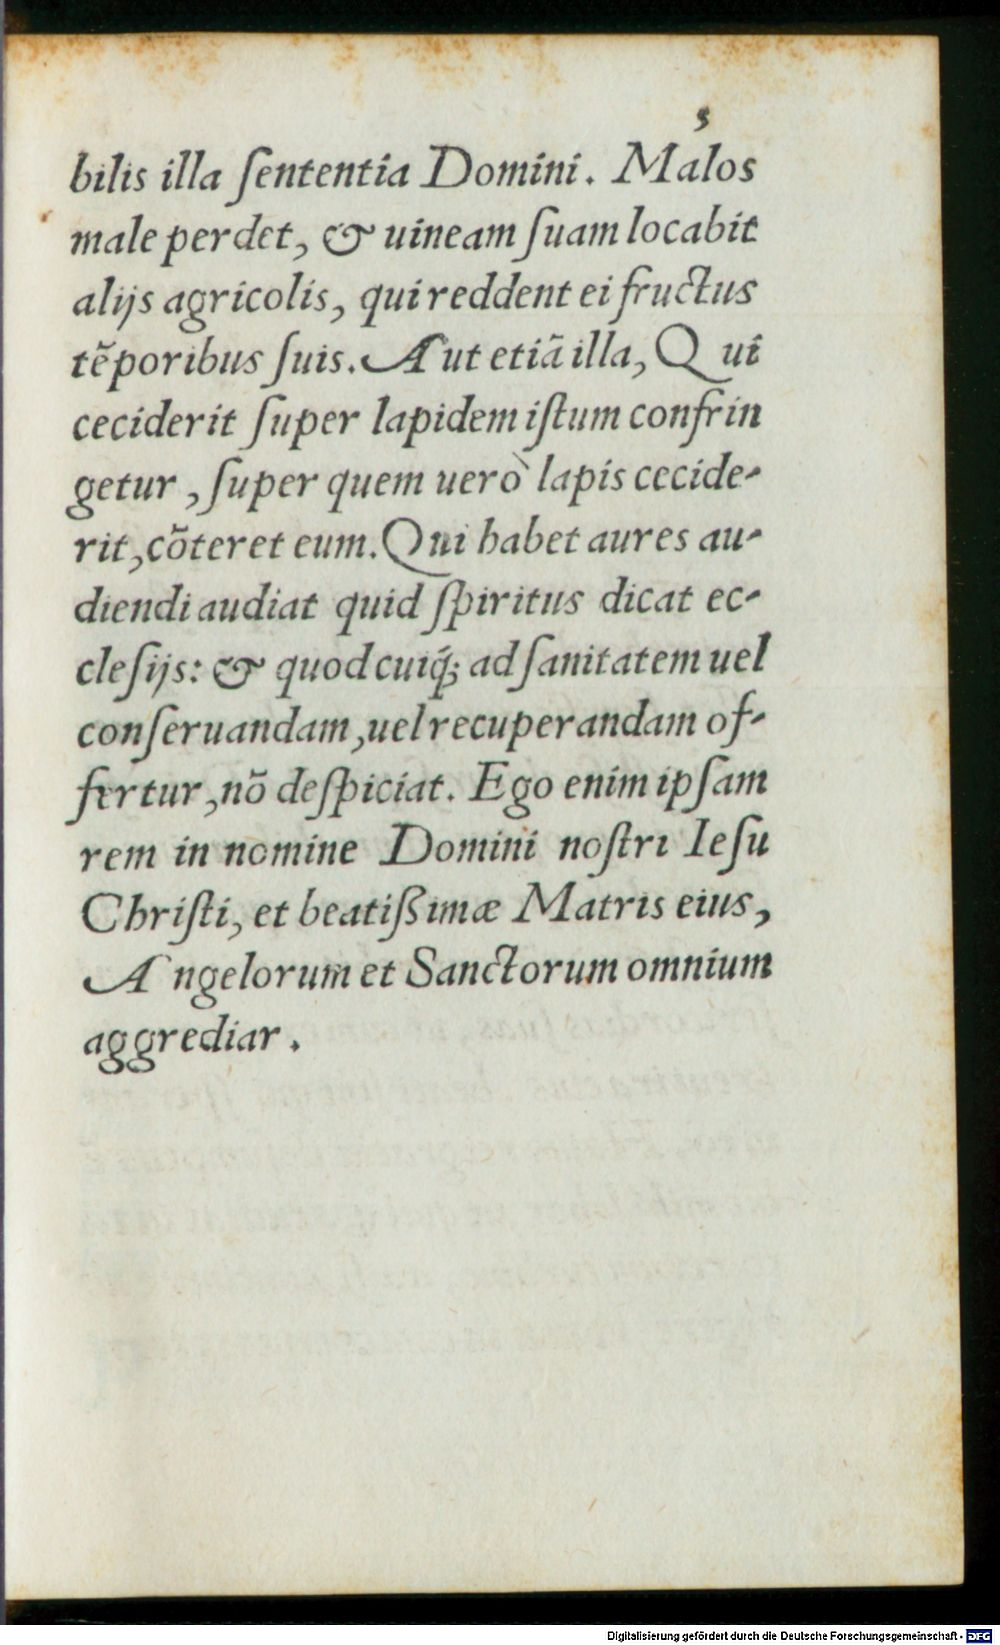 5
bilis illa ſententia Domini. Malos
male perdet, & uineam ſuam locabit
alijs agricolis, qui reddent ei fructus
tẽporibus ſuis. Aut etiã illa, Qui
ceciderit ſuper lapidem iſtum confrin
getur, ſuper quem uerò lapis cecide-
rit, cõteret eum. Qui habet aures au-
diendi audiat quid ſpiritus dicat ec-
cleſijs: & quod cuiq́; ad ſanitatem uel
conſeruandam, uel recuperandam of-
fertur, nõ deſpiciat. Ego enim ipſam
rem in nomine Domini noſtri Ieſu
Chriſti, et beatißimæ Matris eius,
Angelorum et Sanctorum omnium
aggrediar.
Digitalisierung gefördert durch die Deutsche Forschungsgemeinschaft - DFG